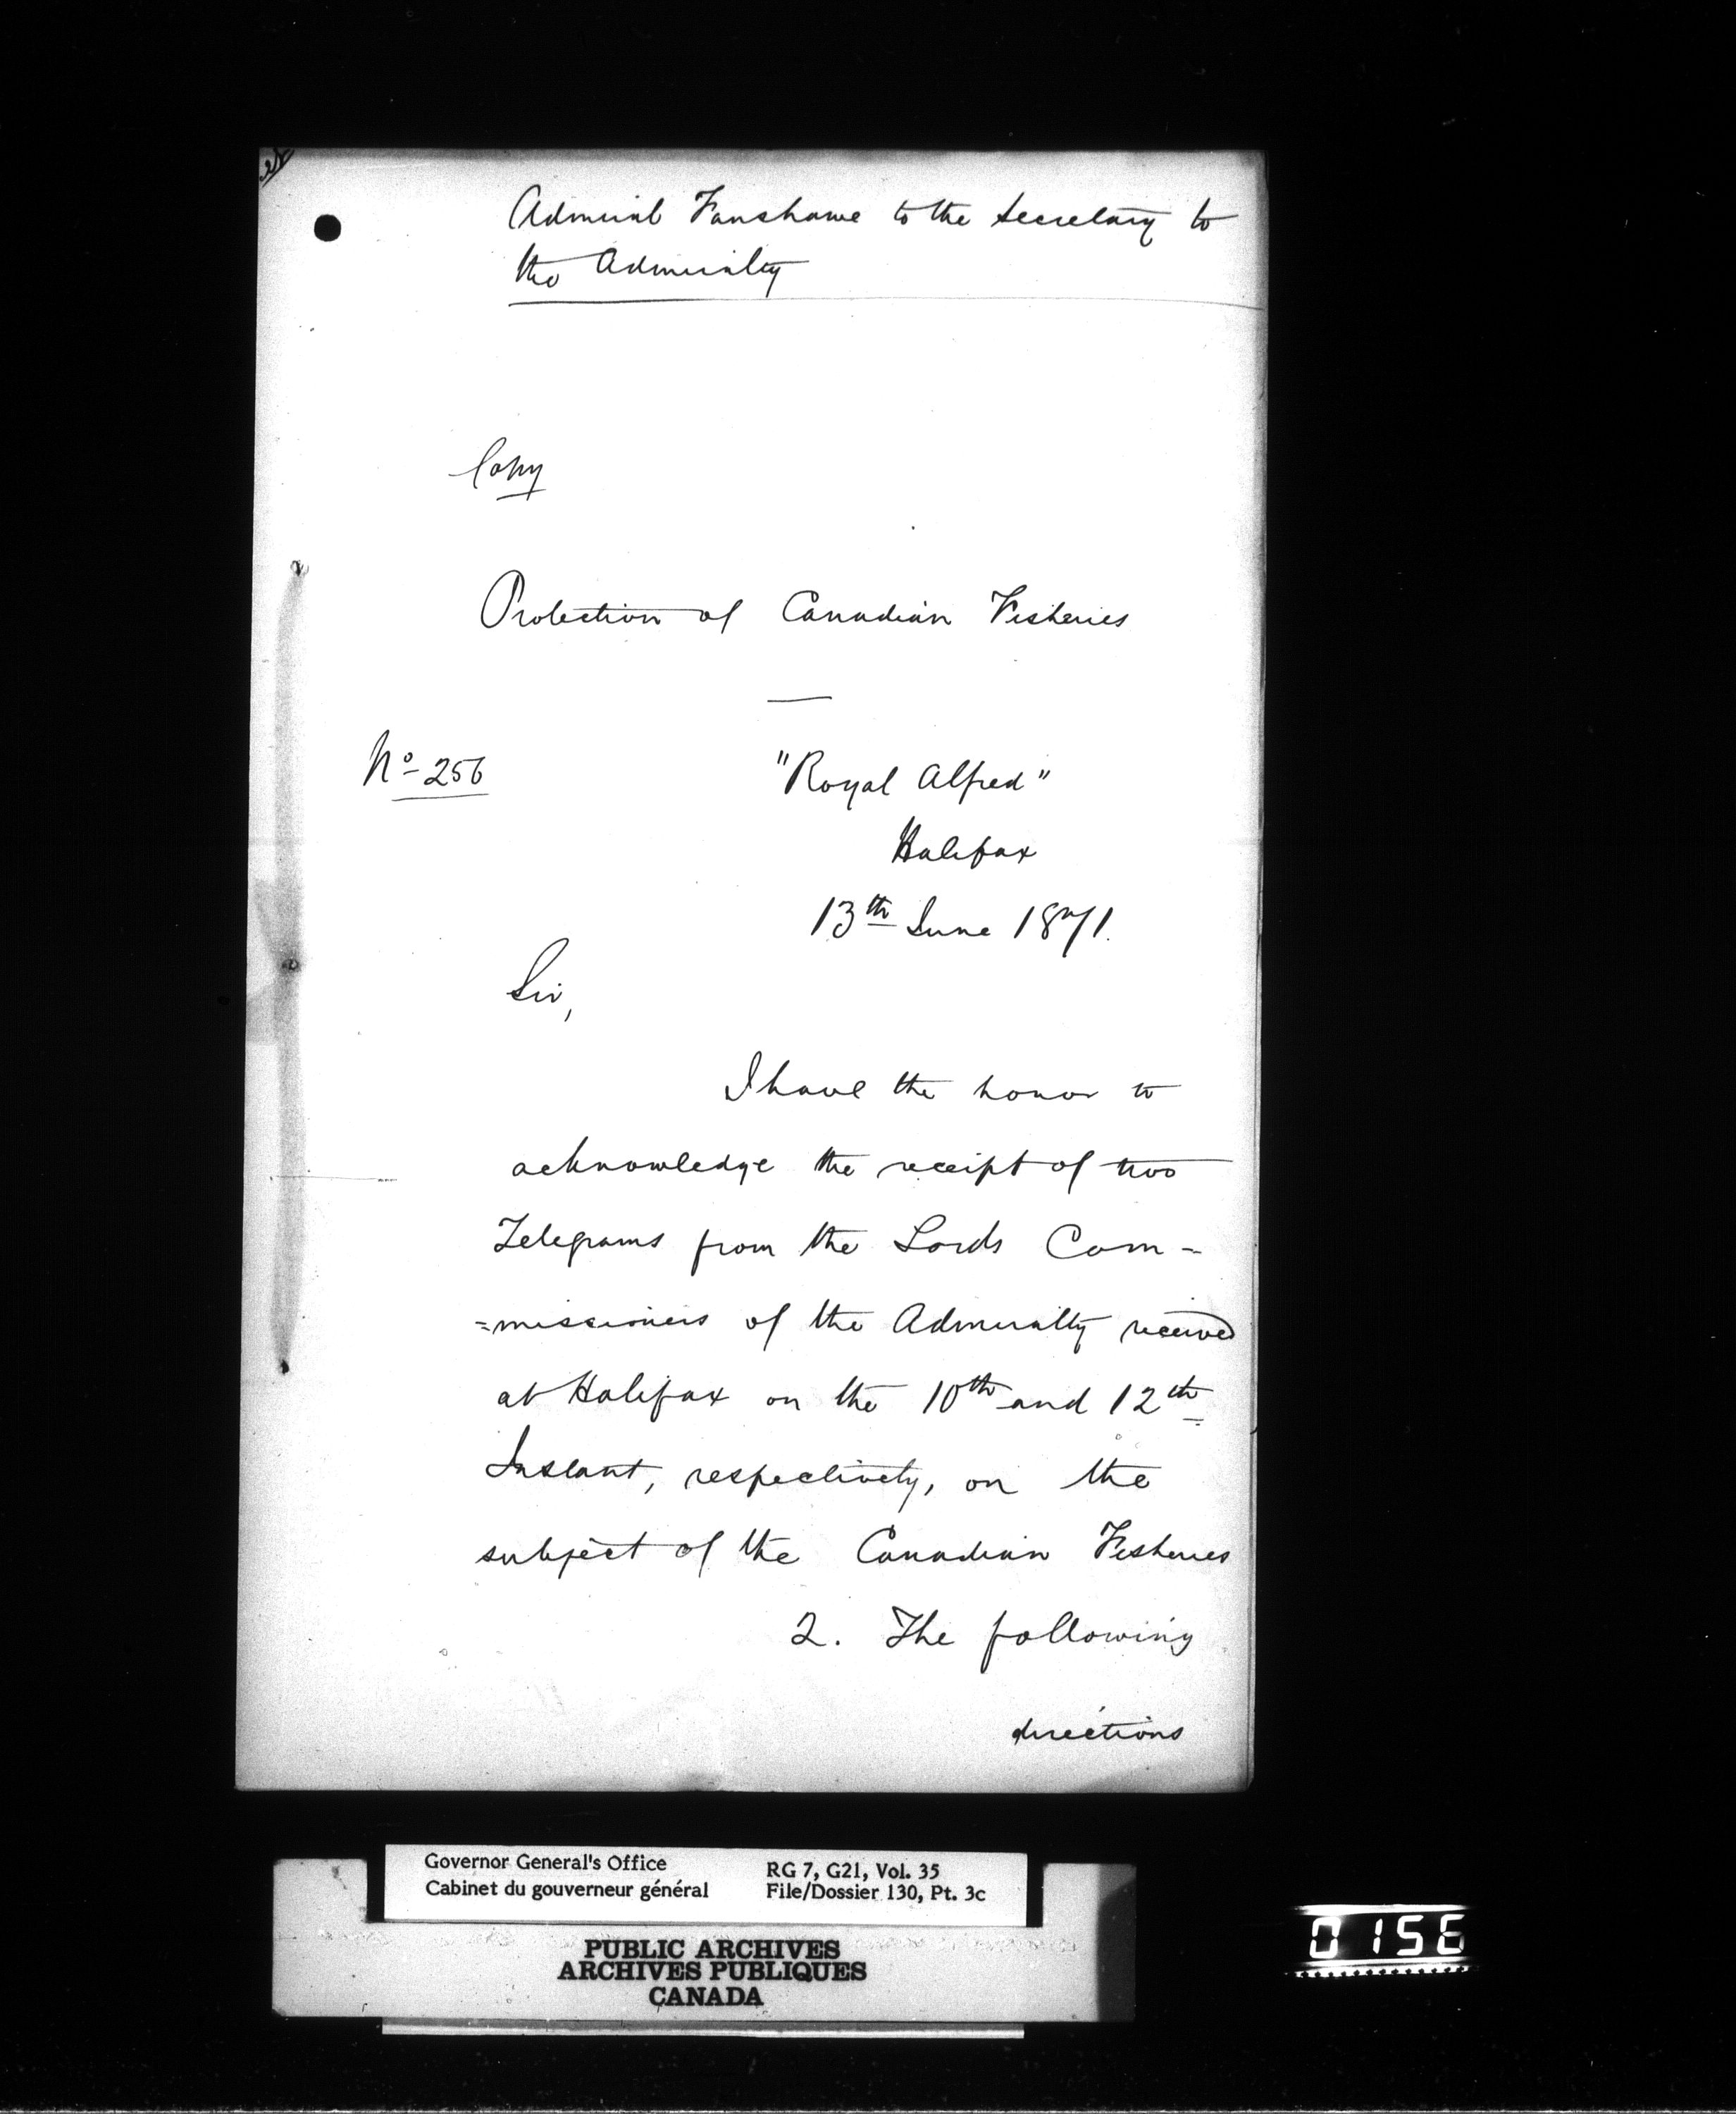 Admiral Fanshawe to the Secretary to
the Admiralty
Copy
Protection of Canadian Fisheries
No 256
"Royal Alfred"
Halifax
13th June 1871.
Sir,
I have the honor to
acknowledge the receipt of two
Telegrams from the Lords Com-
=missioners of the Admiralty received
at Halifax on the 10th and 12th
Instant, respectively, on the
subject of the Canadian Fisheries
2. The following
directions
Governor General's Office
Cabinet du gouverneur général
RG 7, G21, Vol. 35
File/Dossier 130, Pt. 3c
PUBLIC ARCHIVES
ARCHIVES PUBLIQUES
CANADA
0156